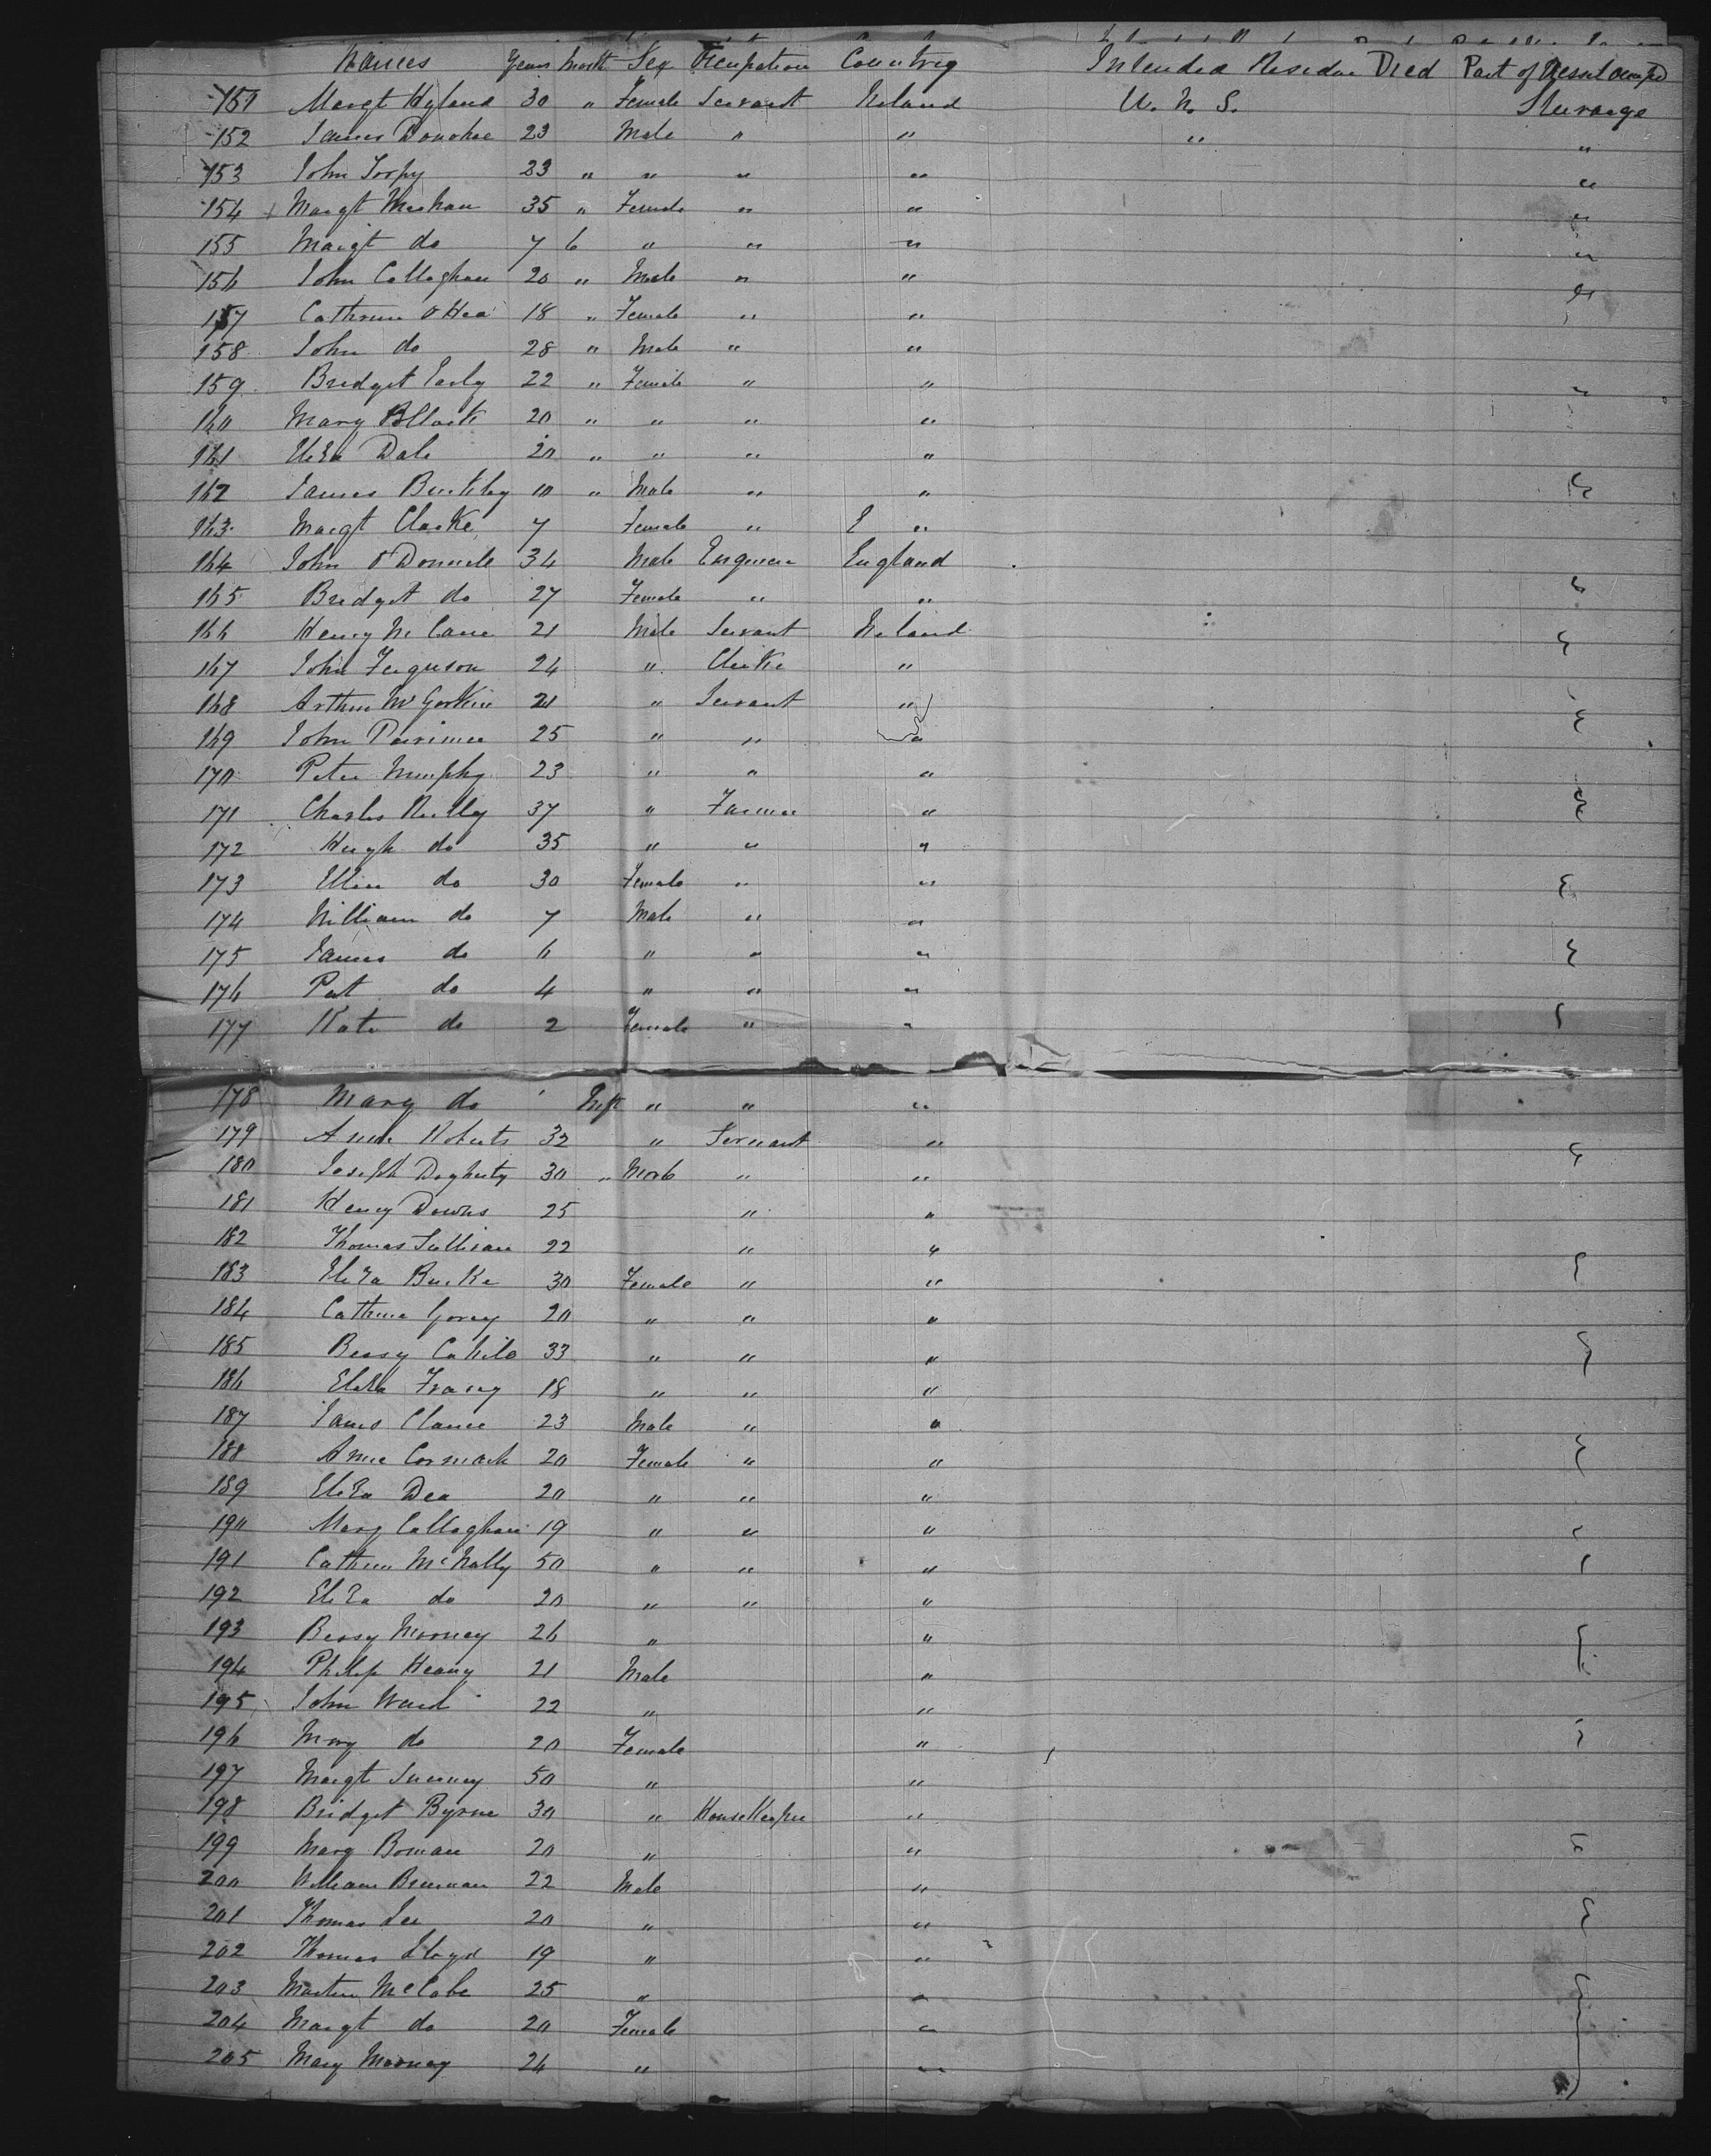 Names Years Month Sex Occupation Country Intended Residce Died Part of Vessel occupd
151 Margt Hyland 30 " Female Servant Ireland U. N. S. Steerage
152 James Donohue 23 Male " " " "
153 John Torpy 23 " " " " "
154 Margt Meehan 35 " Female " " "
155 Margt do 7 6 " " " "
156 John Callaghan 20 " Male " " "
157 Cathrine O Hea 18 " Female " "
158 John do 28 " Male " "
159 Bridget Early 22 " Female " " "
160 Mary 20 " " " "
161 Eliza Dale 20 " " " "
162 James Buckley 10 " Male " "
163 Margt Clarke 7 Female " E "
164 John O Donnell 34 Male Engineer England
165 Bridget do 27 Female " "
166 Henry Mc Cann 21 Male Servant Ireland
167 John Ferguson 24 " Clerke "
168 Arthur Mc 21 " Servant "
169 John 25 " " "
170 Peter Murphy 23 " " "
171 Charles Reilly 37 " Farmer "
172 Hugh do 35 " " "
173 Ellen do 30 Female " "
174 William do 7 Male " "
175 James do 6 " " "
176 Pat do 4 " " "
177 Kate do 2 Female " "
178 Mary do Inft " " "
179 Annie Roberts 32 " Servant "
180 Joseph Dogherty 30 " Male " "
181 Henry Downs 25 " "
182 Thomas Sullivan 22 " "
183 Eliza Burke 30 Female " "
184 Cathrine Gorey 20 " " "
185 Bessy Cahill 33 " " "
186 Eliza 18 " " "
187 James Clance 23 Male " "
188 Annie Cormack 20 Female " "
189 Eliza Dea 20 " " "
190 Mary Callaghan 19 " " "
191 Cathrin McNally 50 " " "
192 Eliza do 20 " " "
193 Bessy Mooney 26 " "
194 Philip Heany 21 Male "
195 John Ward 22 " "
196 Mary do 20 Female "
197 Margt Sweeney 50 " "
198 Bridget Byrne 30 " HouseKeeper "
199 Mary Bowan 20 " "
200 William Brennan 22 Male "
201 Thomas Lee 20 " "
202 Thomas Lloyd 19 " "
203 Martin McCabe 25 " "
204 Margt do 20 Female "
205 Mary Mooney 24 " "